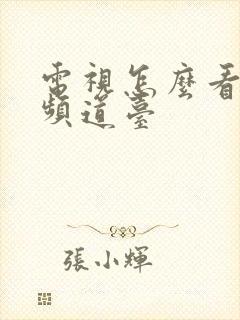 電視怎麼看
頻道臺
張小輝